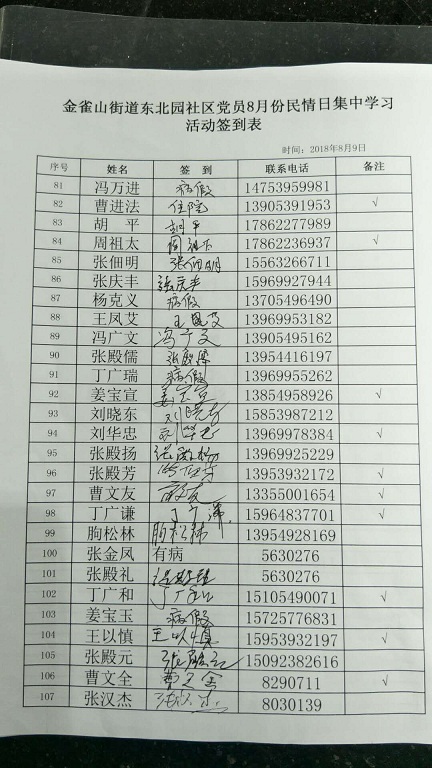 金雀山街道东北园社区党员8月份民情日集中学习
活动签到表
时间：2018年8月9日
序号 姓名 签 到 联系电话 备注
81 冯万进 病假 14753959981
82 曹进法 住院 13905391953 √
83 胡 平 胡平 17862277989
84 周祖太 周祖太 17862236937 √
85 张佃明 张佃明 15563266711
86 张庆丰 张庆丰 15969927944
87 杨克义 病假 13705496490
88 王凤艾 王凤艾 13969953182
89 冯广文 冯广文 13905495162
90 张殿儒 张殿儒 13954416197
91 丁广瑞 病假 13969955262
92 姜宝宣 姜宝宣 13854958926 √
93 刘晓东 刘晓东 15853987212
94 刘华忠 刘华忠 13969978384 √
95 张殿扬 张殿扬 13969925229
96 张殿芳 张殿芳 13953932172 √
97 曹文友 13355001654 √
98 丁广谦 丁广谦 15964837701 √
99 朐松林 朐松林 13954928169
100 张金凤 有病 5630276
101 张殿礼 张殿礼 5630276
102 丁广和 丁广和 15105490071 √
103 姜宝玉 病假 15725776831
104 王以慎 王以慎 15953932197 √
105 张殿元 张殿元 15092382616
106 曹文全 曹文全 8290711 √
107 张汉杰 张汉杰 8030139